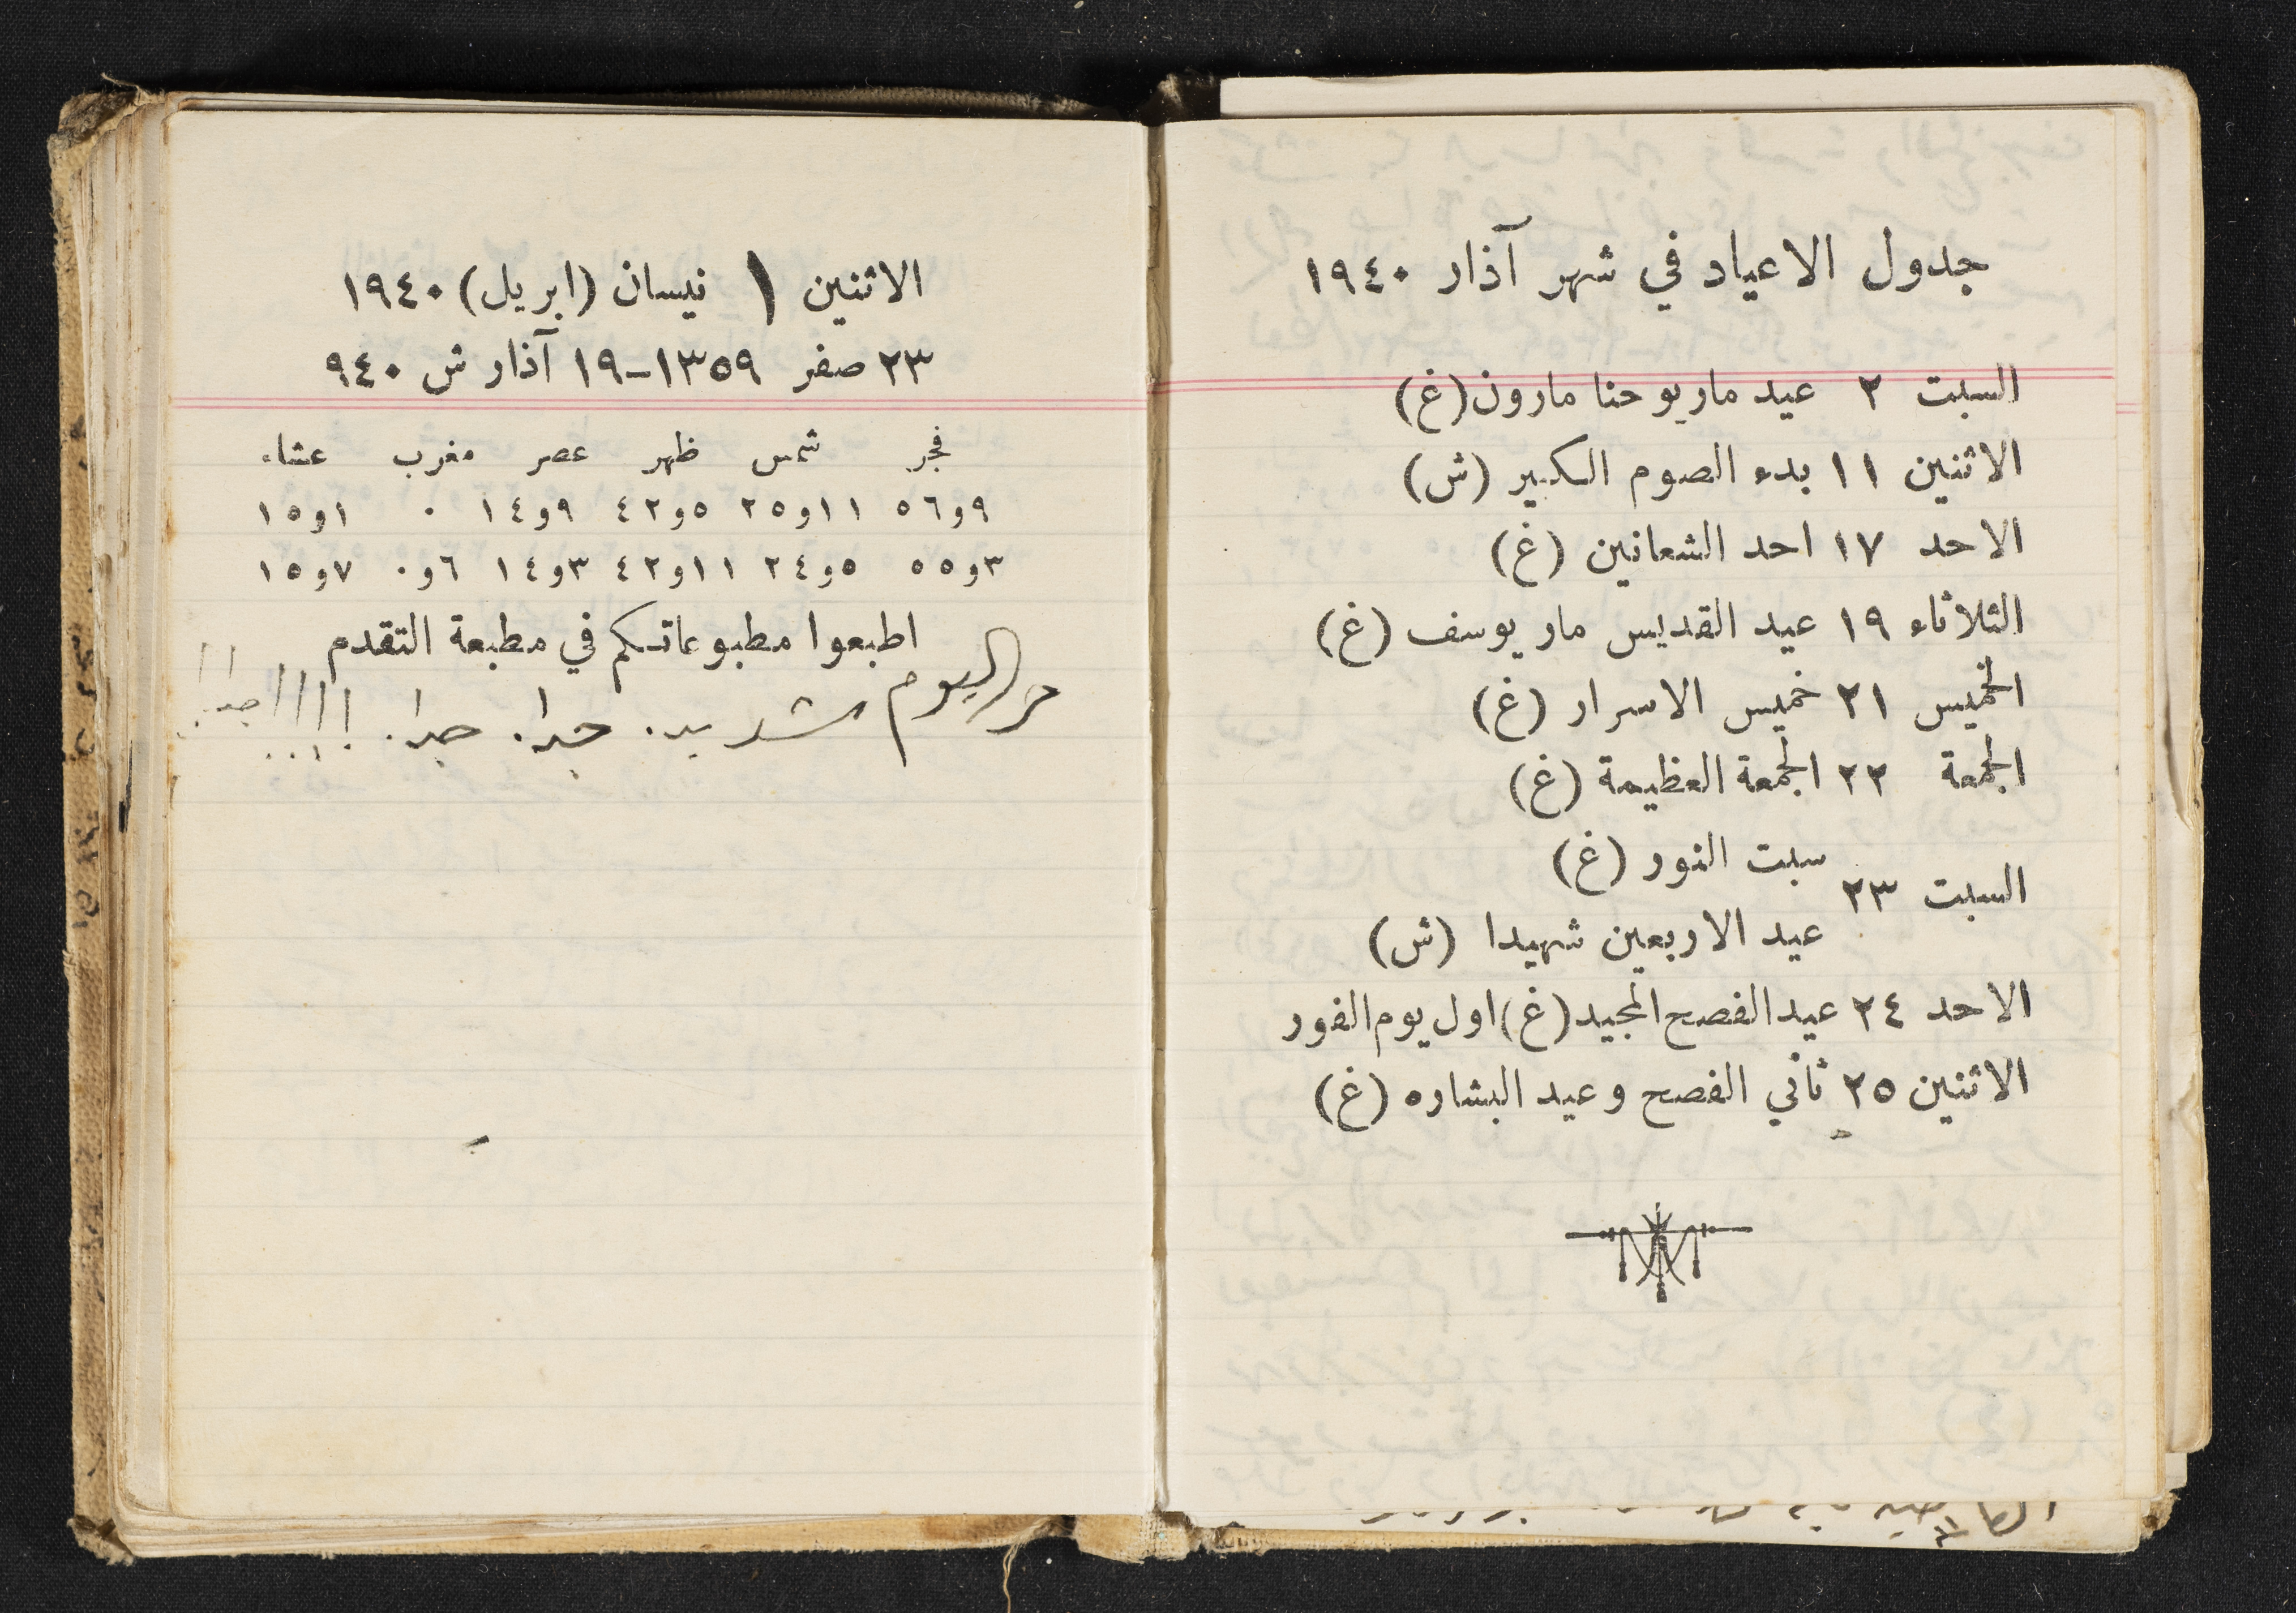 جدول الاعياد في شهر آذار ١٩٤٠
السبت ٢ عيد مار يوحنا مارون (غ)
الاثنين ١١ بدء الصوم الكبير (ش)
الاحد ١٧ احد الشعانين (غ)
الثلاثاء ١٩ عيد القديس مار يوسف (غ)
الخميس ٢١ خميس الاسرار (غ)
الجمعة ٢٢ الجمعة العظيمة (غ)
سبت النور (غ)
السبت ٢٣
عيد الاربعين شهيدا (ش)
الاحد ٢٤ عيد الفصح المجيد (غ) اول يوم الفور
الاثنين ٢٥ ثاني الفصح وعيد البشاره (غ)
الاثنين ١ نيسان (ابريل) ١٩٤٠
٢٣ صفر ١٣٥٩-١٩ آذار ش ٩٤٠
فجر شمس ظهر عصر مغرب عشاء
٩و٥٦ ١١و٢٥ ٥و٤٢ ٩و١٤ ٠ ١و١٥
٣و٥٥ ٥و٢٤ ١١و٤٢ ٣و١٤ ٦و٠ ٧و١٥
اطبعوا مطبوعاتكم في مطبعة التقدم
حر اليوم شديد. جدا. جدا. !!!! جدا !!